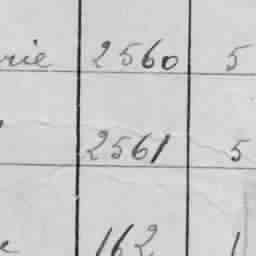 rie 2560 5
2561 5
162 1